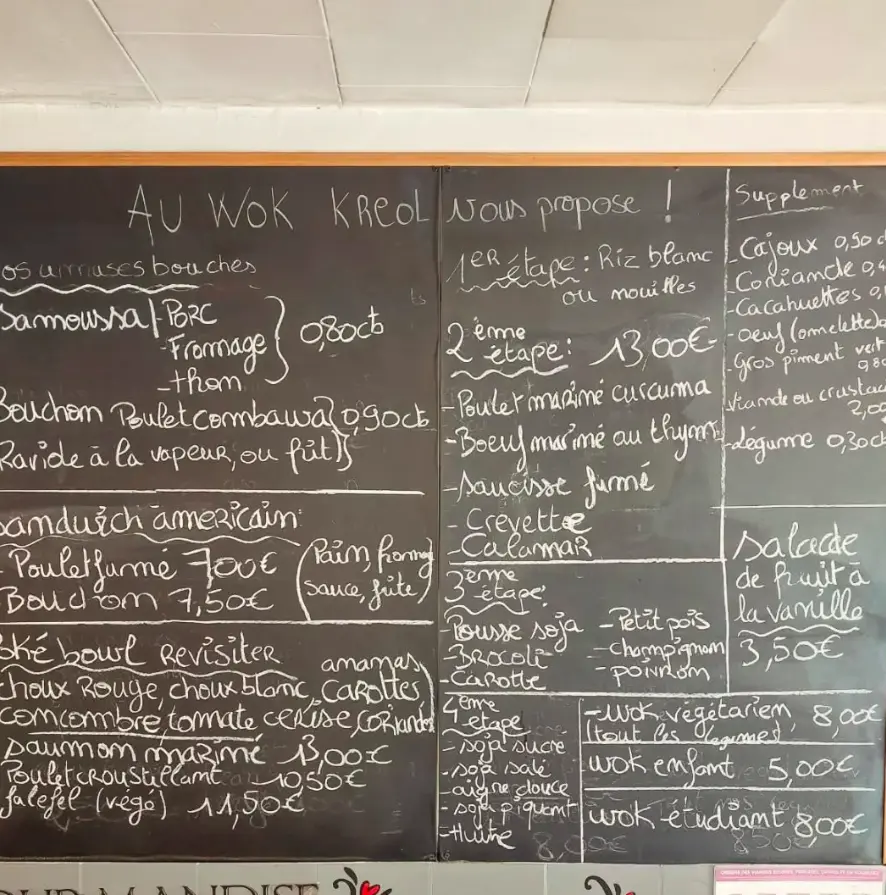 AU WOK KREOL Nous propose !
os amuses bouches
Samoussa - Porc
- Fromage
- thom
0,80ct
Bouchom Poulet combawa 0,90ct
Ravide à la vapeur, ou frit
Samduich américain
Poulet fumé 7,00€
Bouchom 7,50€
(Paim, fromag
sauce, frite)
oké bowl Revisiter
choux Rouge, choux blanc, Carottes
amamas
comcombre, tomate cerise, coriander
saumom marimé 13,00€
Poulet croustillamt 10,50€
falefel (végé) 11,50€
1ER étape : Riz blamc
ou mouilles
2ème étape : 13,00€
- Poulet marimé curcuma
- Boeuf marimé au thym
- saucisse fumé
- Crevette
- Calamar
3ème étape
- Pousse soja
- Brocoli
- Carotte
- Petit pois
- champignom
- poivrom
4ème étape
- soja sucré
- soja salé
- aigre douce
- soja piquamt
- Huitre
- wok végétariem 8,00€
(tout les légumes)
wok emfamt 5,00€
wok étudiamt 8,00€
Supplement
- Cajoux 0,50
- Coriamde 0,
- Cacahuettes 0,
- oeuf (omelette)
- Gros piment vert
0,80
Viamde ou crustac
2,00
- Légume 0,30ct
Salade
de fruit à
la vamille
3,50€